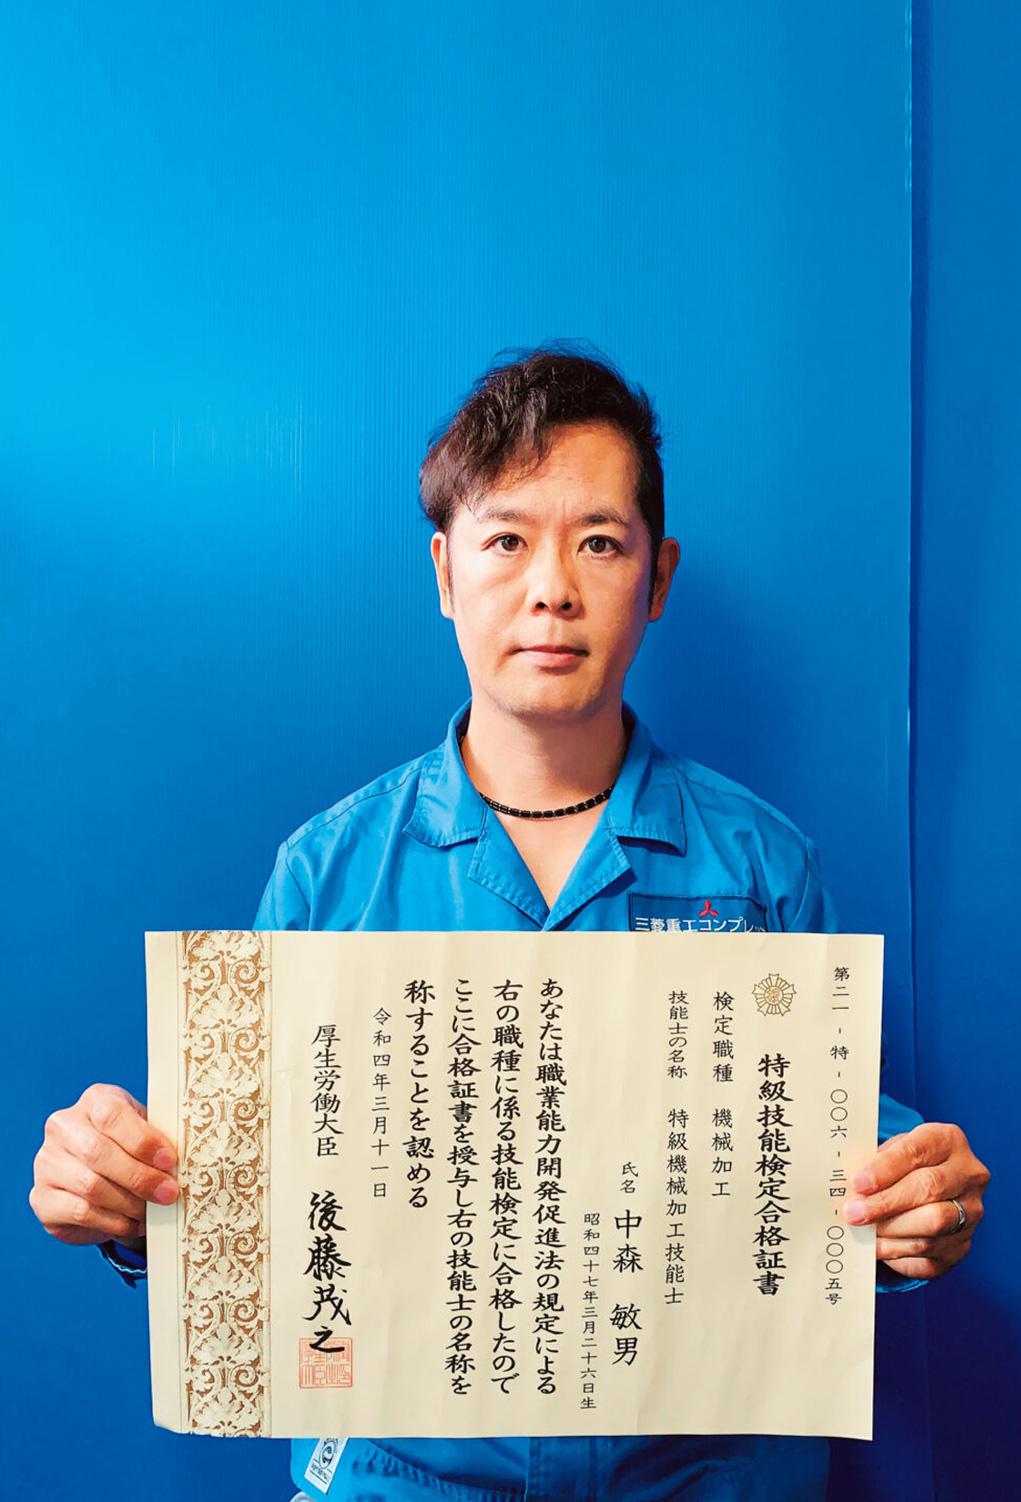 三菱重工コンプレ
第二一-特-〇〇六-三四-〇〇〇五号
特級技能検定合格証書
検定職種 機械加工
技能士の名称 特級機械加工技能士
氏名 中森 敏男
昭和四十七年三月二十六日生
あなたは職業能力開発促進法の規定による
右の職種に係る技能検定に合格したので
ここに合格証書を授与し右の技能士の名称を
称することを認める
令和四年三月十一日
厚生労働大臣 後藤茂之